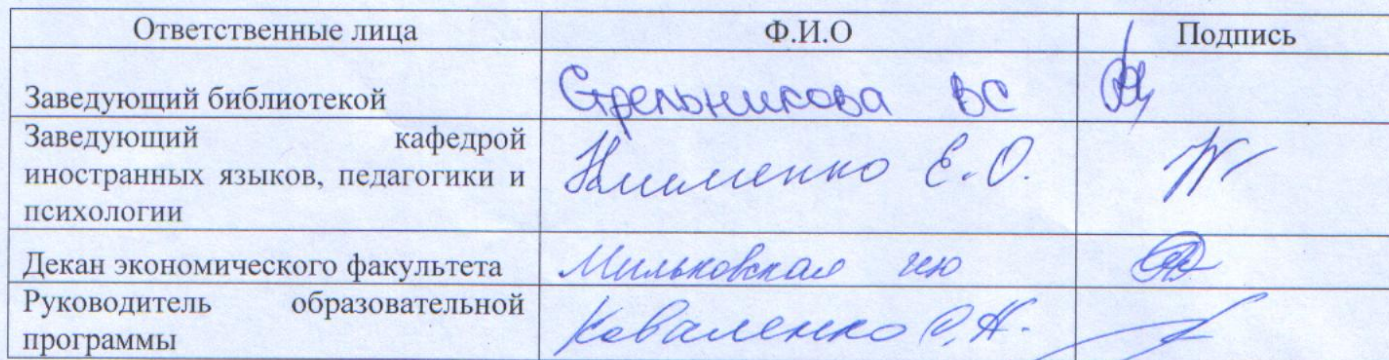 Ответственные лица Ф.И.О Подпись
Заведующий библиотекой Стрельникова ВС
Заведующий кафедрой
иностранных языков, педагогики и
психологии
Клименко Е.О.
Декан экономического факультета Мильковская
Руководитель образовательной
программы
Коваленко